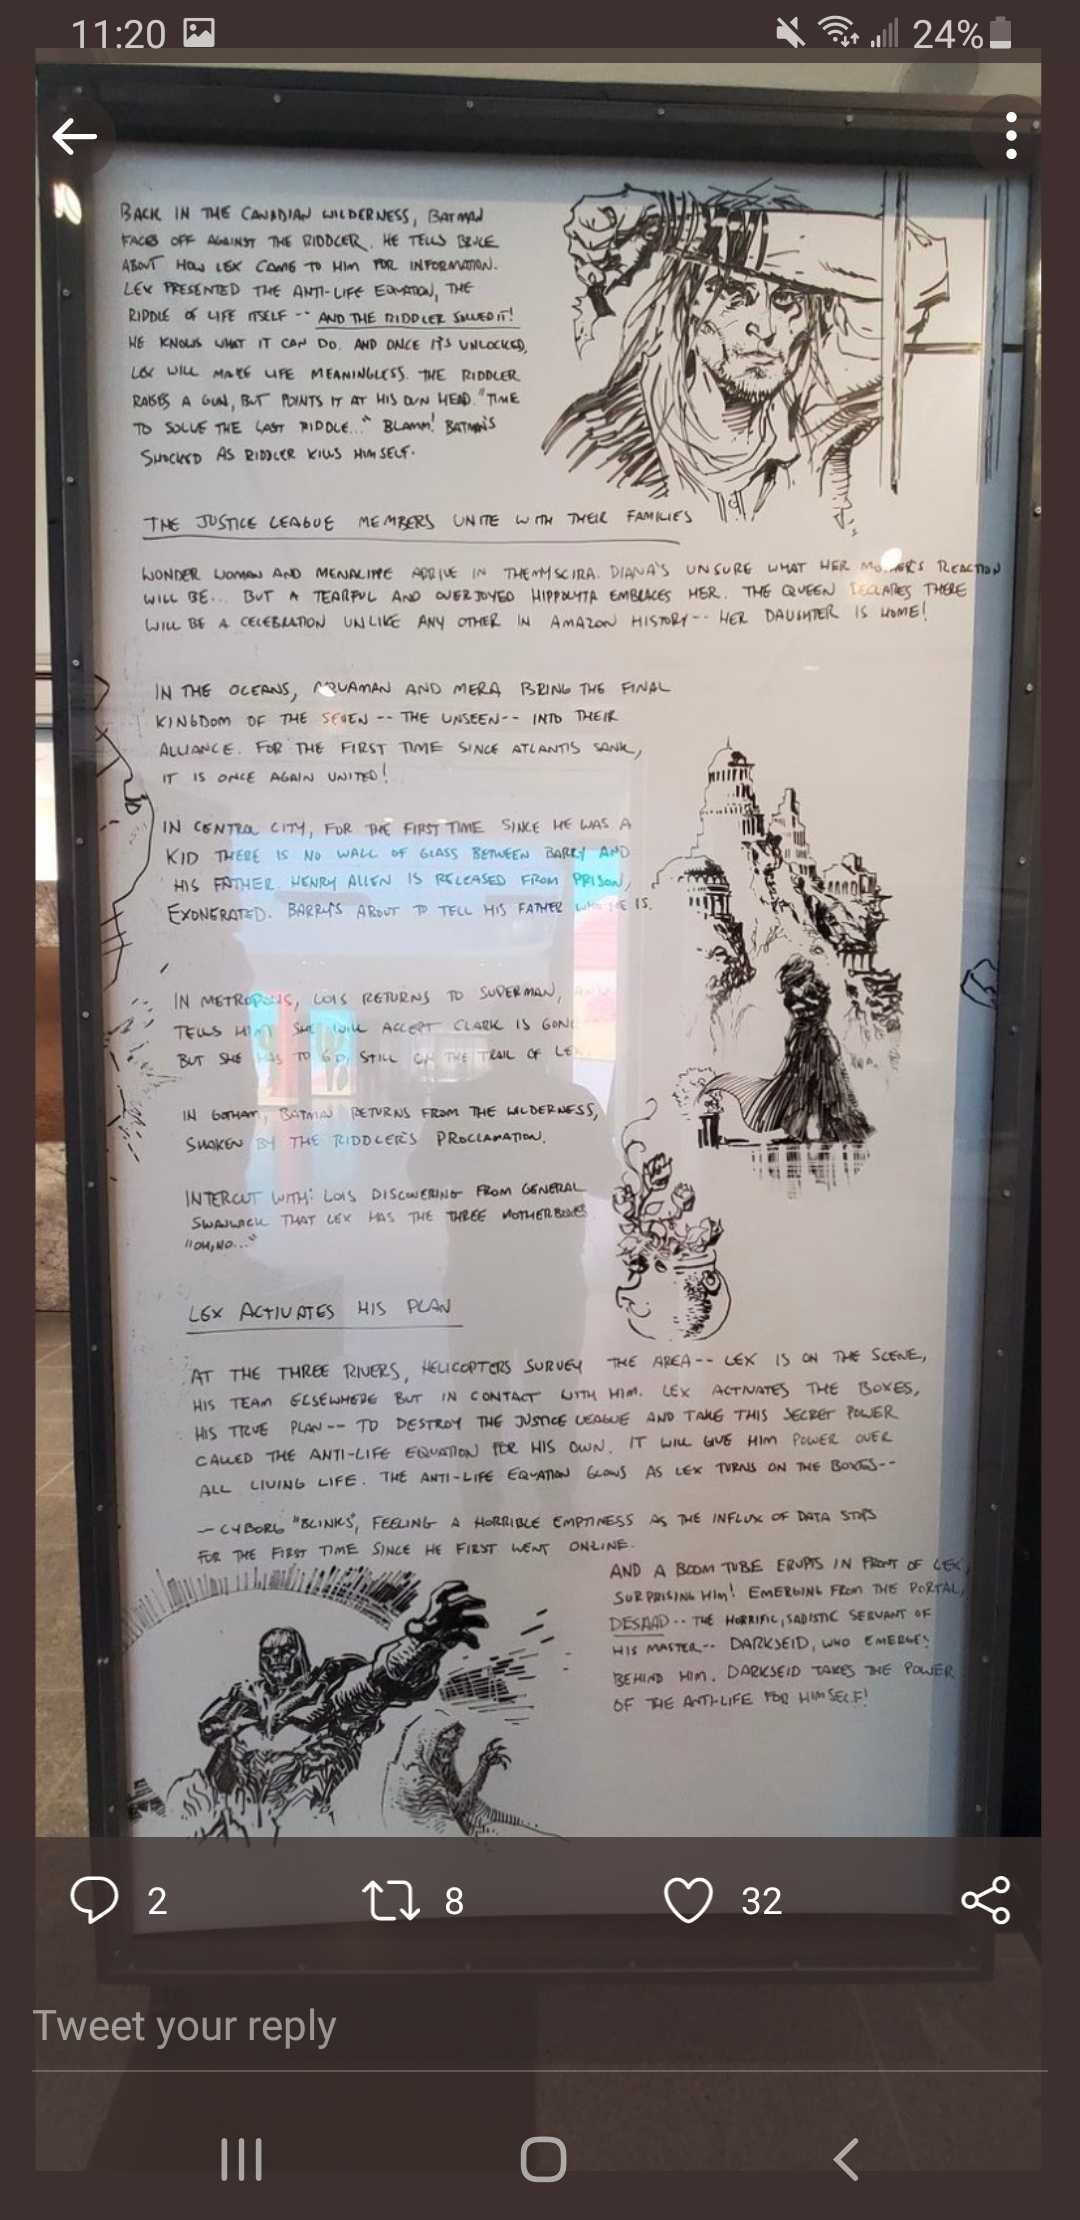 11:20
24%
BACK IN THE CANADIAN WILDERNESS, BATMAN
FACES OFF AGAINST THE RIDDLER. HE TELLS BRUCE
ABOUT HOW LEX CAME TO HIM FOR INFORMATION.
LEX PRESENTED THE ANTI-LIFE EQUATION, THE
RIDDLE OF LIFE ITSELF -- AND THE RIDDLER SOLVED IT!
HE KNOWS WHAT IT CAN DO. AND ONCE IT'S UNLOCKED,
LEX WILL MAKE LIFE MEANINGLESS. THE RIDDLER
RAISES A GUN, BUT POINTS IT AT HIS OWN HEAD. "TIME
TO SOLVE THE LAST RIDDLE..." BLAMM! BATMAN'S
SHOCKED AS RIDDLER KILLS HIMSELF.
THE JUSTICE LEAGUE MEMBERS UNITE WITH THEIR FAMILIES
WONDER WOMAN AND MENALIPPE ARRIVE IN THEMYSCIRA. DIANA'S UNSURE WHAT HER MOTHER'S REACTION
WILL BE... BUT A TEARFUL AND OVERJOYED HIPPOLYTA EMBRACES HER. THE QUEEN DECLARES THERE
WILL BE A CELEBRATION UNLIKE ANY OTHER IN AMAZON HISTORY-- HER DAUGHTER IS HOME!
IN THE OCEANS, AQUAMAN AND MERA BRING THE FINAL
KINGDOM OF THE SEVEN -- THE UNSEEN -- INTO THEIR
ALLIANCE. FOR THE FIRST TIME SINCE ATLANTIS SANK,
IT IS ONCE AGAIN UNITED!
IN CENTRAL CITY, FOR THE FIRST TIME SINCE HE WAS A
KID THERE IS NO WALL OF GLASS BETWEEN BARRY AND
HIS FATHER. HENRY ALLEN IS RELEASED FROM PRISON,
EXONERATED. BARRY'S ABOUT TO TELL HIS FATHER WHO HE IS.
IN METROPOLIS, LOIS RETURNS TO SUPERMAN,
TELLS HIM SHE WILL ACCEPT CLARK IS GONE
BUT SHE HAS TO GO, STILL ON THE TRAIL OF LEX.
IN GOTHAM, BATMAN RETURNS FROM THE WILDERNESS,
SHAKEN BY THE RIDDLER'S PROCLAMATION.
INTERCUT WITH: LOIS DISCOVERING FROM GENERAL
SWANWICK THAT LEX HAS THE THREE MOTHERBOXES
"OH, NO..."
LEX ACTIVATES HIS PLAN
AT THE THREE RIVERS, HELICOPTERS SURVEY THE AREA -- LEX IS ON THE SCENE,
HIS TEAM ELSEWHERE BUT IN CONTACT WITH HIM. LEX ACTIVATES THE BOXES,
HIS TRUE PLAN -- TO DESTROY THE JUSTICE LEAGUE AND TAKE THIS SECRET POWER
CALLED THE ANTI-LIFE EQUATION FOR HIS OWN. IT WILL GIVE HIM POWER OVER
ALL LIVING LIFE. THE ANTI-LIFE EQUATION GLOWS AS LEX TURNS ON THE BOXES--
-- CYBORG "BLINKS", FEELING A HORRIBLE EMPTINESS AS THE INFLUX OF DATA STOPS
FOR THE FIRST TIME SINCE HE FIRST WENT ONLINE.
AND A BOOM TUBE ERUPTS IN FRONT OF LEX,
SURPRISING HIM! EMERGING FROM THE PORTAL,
DESAAD -- THE HORRIFIC, SADISTIC SERVANT OF
HIS MASTER -- DARKSEID, WHO EMERGES
BEHIND HIM. DARKSEID TAKES THE POWER
OF THE ANTI-LIFE FOR HIMSELF!
2
8
32
Tweet your reply